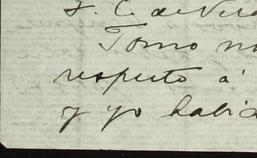 F. C. de Vera
Tomo no
respecto á
y yo habia